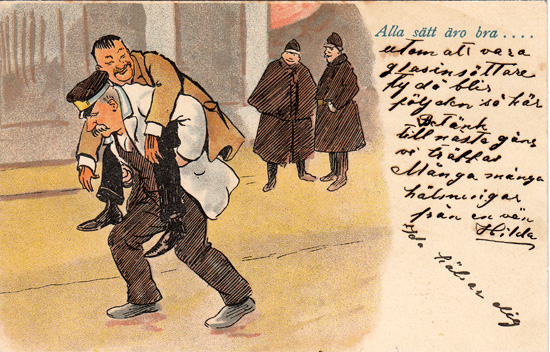 Alla sätt äro bra....
utom att vara
glasinsättare
ty då blir
följden så här
Betänk
till nästa gång
vi träffas
Många många
hälsningar
från en vän
Hilda
hälsar dig